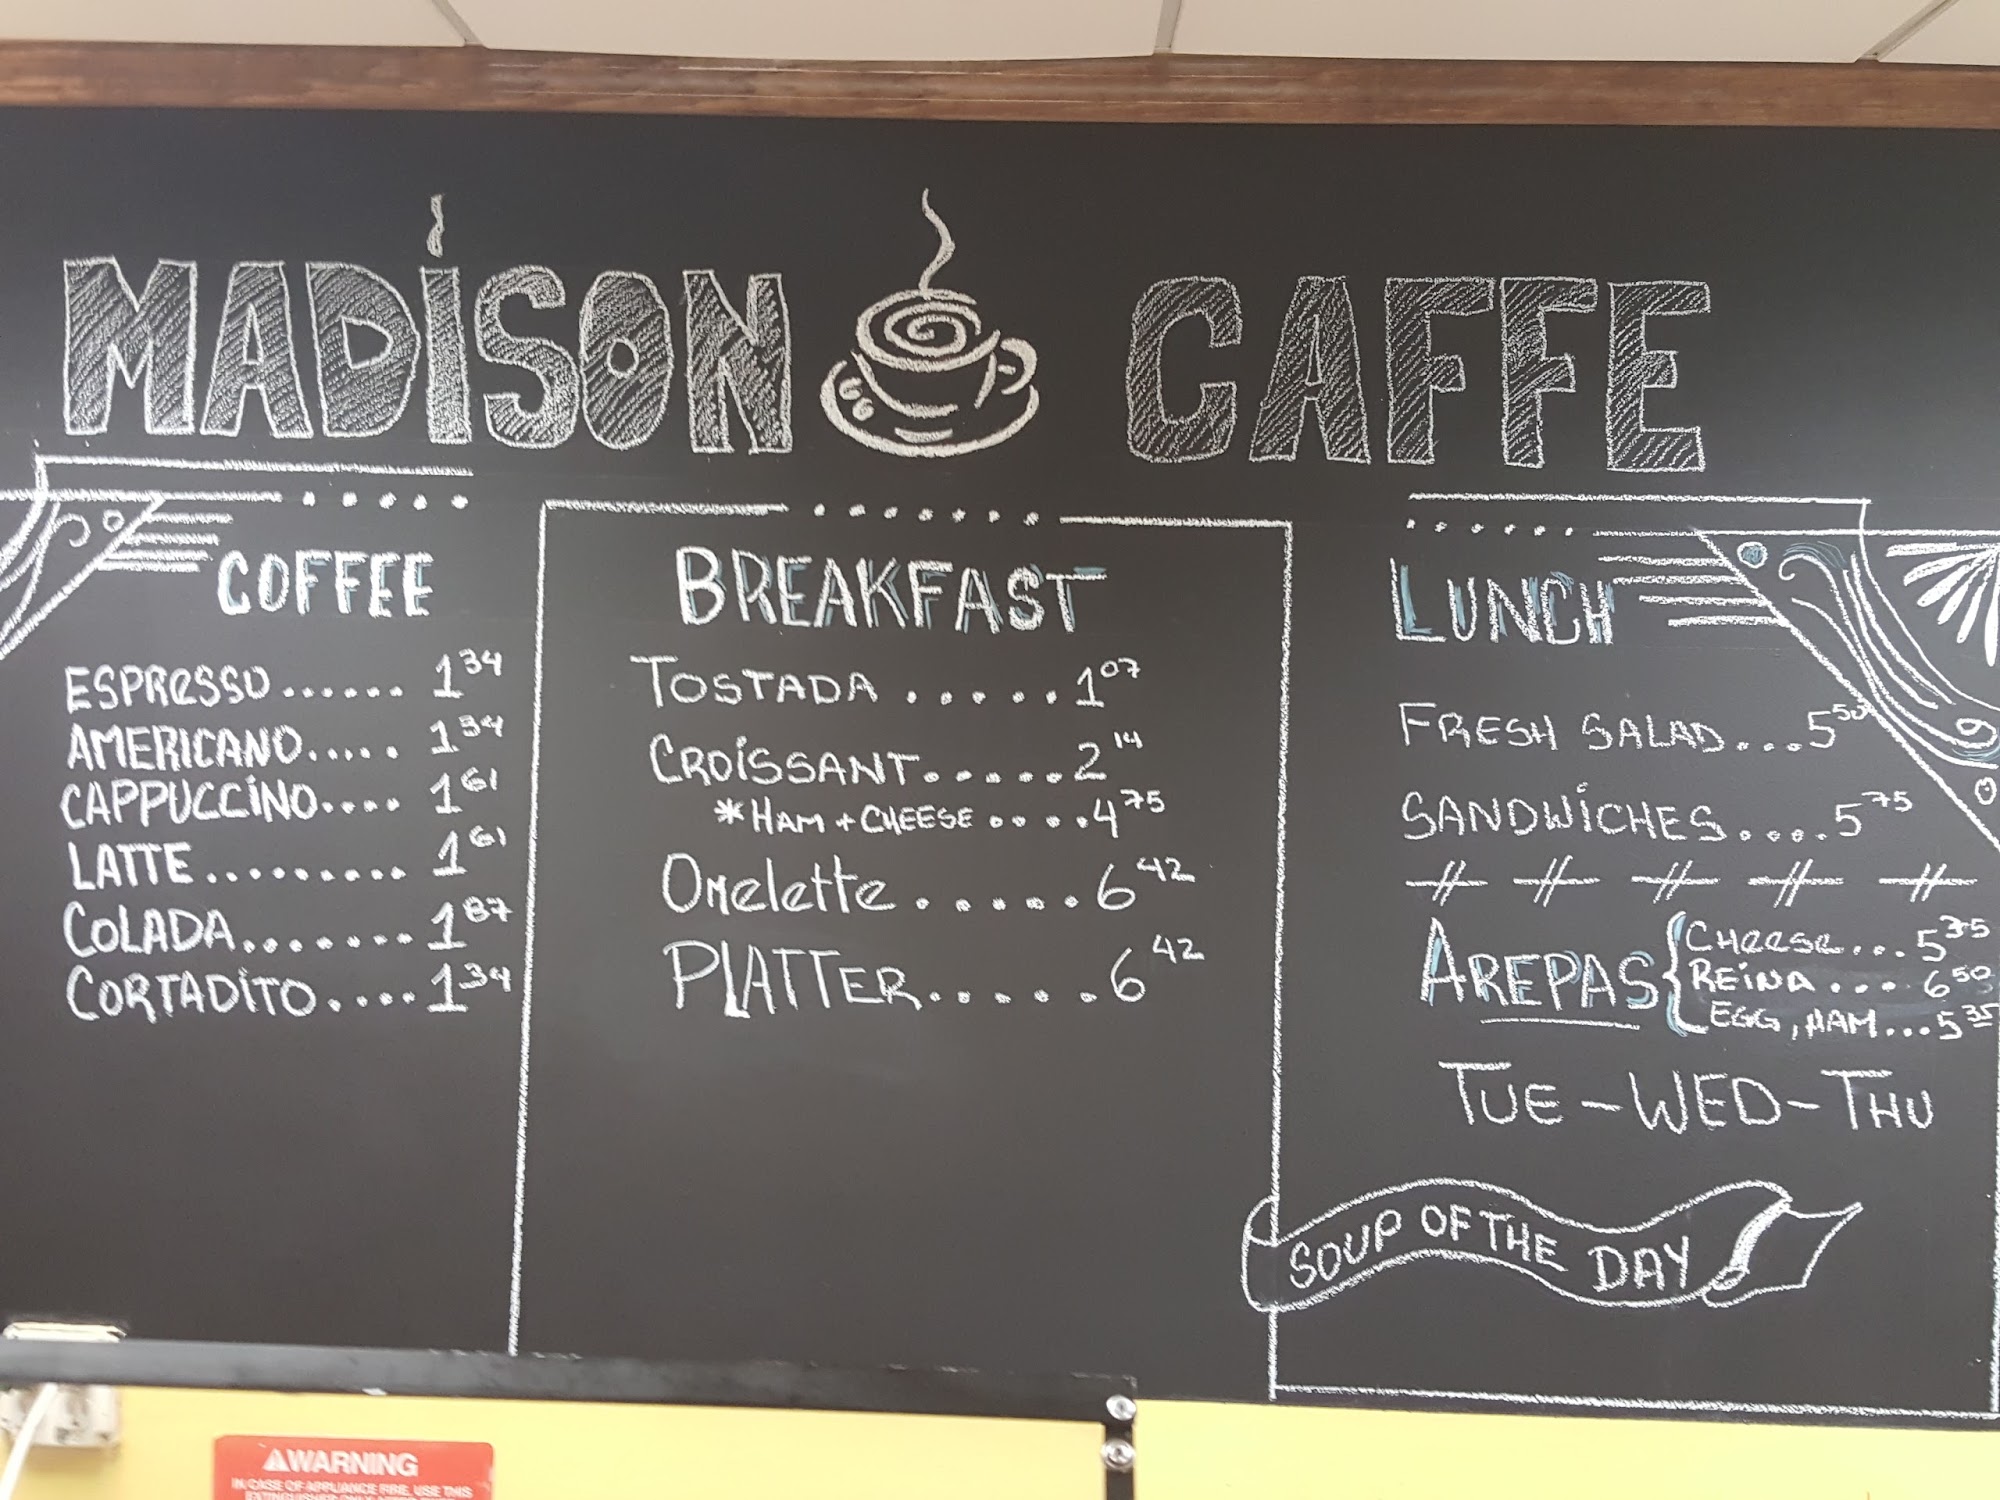 MADISON CAFFE
COFFEE
ESPRESSO...... 1 34
AMERICANO..... 1 34
CAPPUCCINO.... 1 61
LATTE......... 1 61
COLADA....... 1 87
CORTADITO.... 1 34
BREAKFAST
TOSTADA ..... 1 07
CROISSANT..... 2 14
*HAM + CHEESE .... 4 75
Omelette ..... 6 42
PLATTER...... 6 42
LUNCH
FRESH SALAD... 5 50
SANDWICHES.... 5 75
AREPAS
CHEESE... 5 35
REINA ... 6 50
EGG, HAM... 5 35
TUE - WED - THU
SOUP OF THE DAY
WARNING
IN CASE OF APPLIANCE FIRE, USE THIS